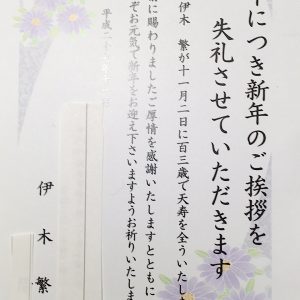 中につき新年のご挨拶を
失礼させていただきます
伊木 繁が十一月二日に百三歳で天寿を全ういたしま
に賜わりましたご厚情を感謝いたしますとともに
ぞお元気で新年をお迎え下さいますようお祈りいたしま
平成二十
伊木 繁